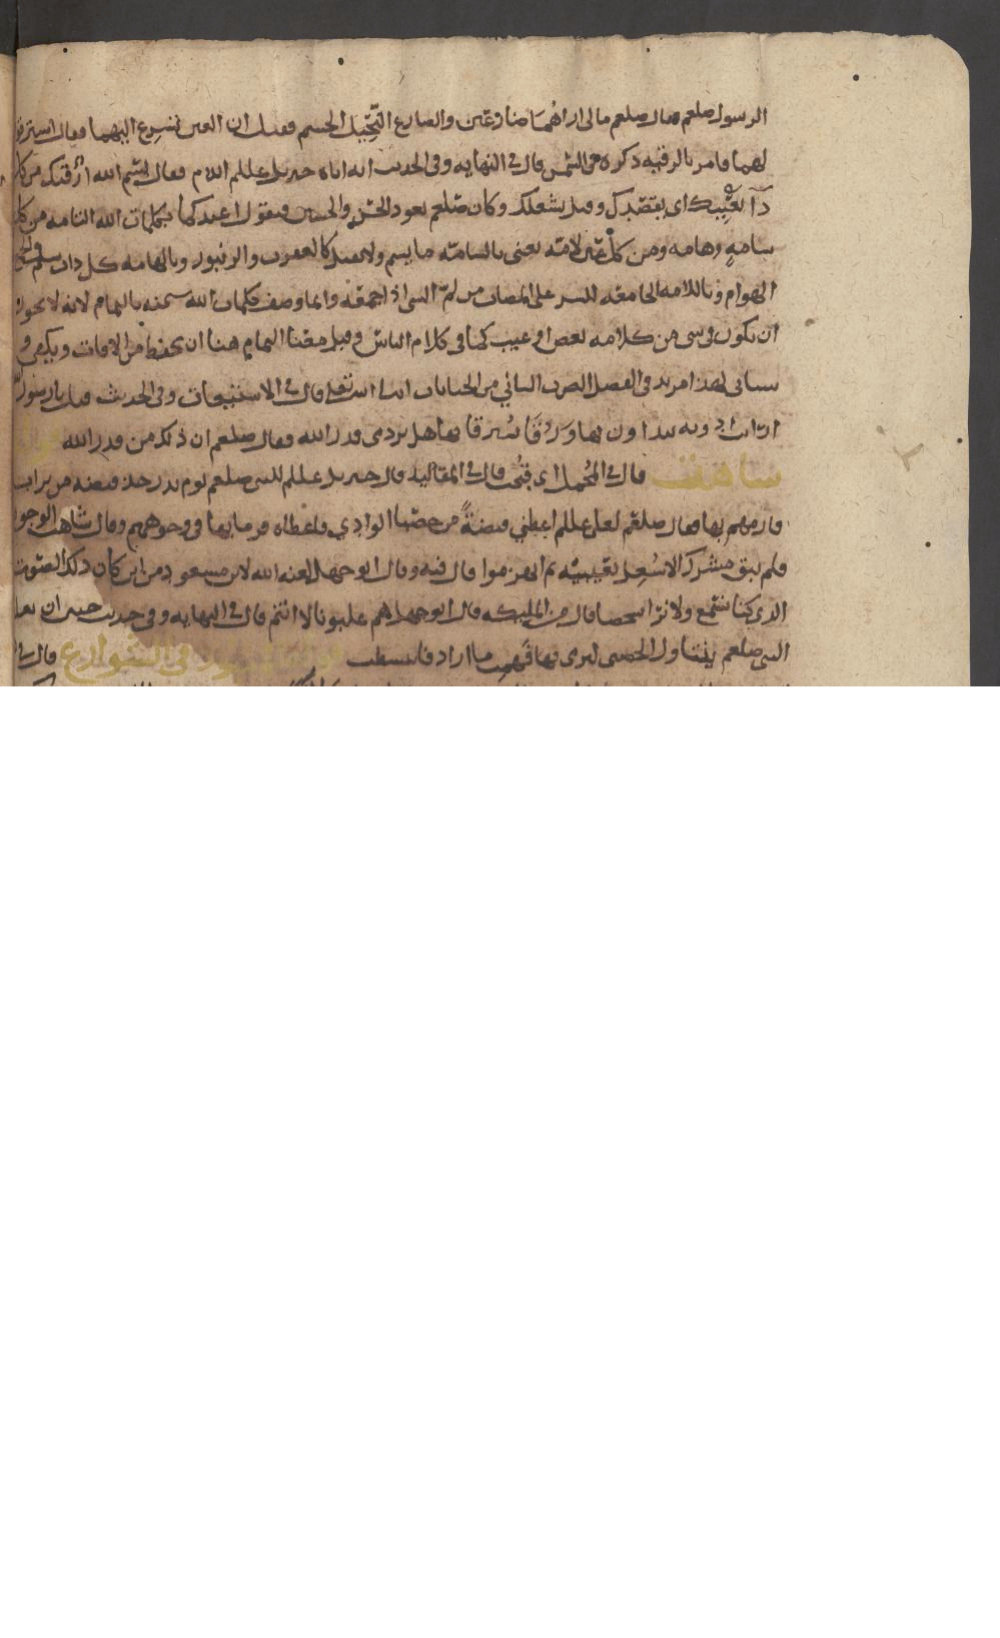 الرسول صلعم فقال صلعم مالى اراهما ضارعين والضارع النحيل الجسم فقيل ان العين تسرع اليهما فقال استرقوا
لهما فامر بالرقيه ذكره فى الشمس قال في النهايه وفى الحديث انه اتاه جبريل عليلم فقال بسم الله ارقيك من كل
دآ يعنيك اى يقصدك وقيل يشغلك وكان صلعم يعوذ الحسن والحسين فيقول اعيذكما بكلمات الله التامه من كل
سامه وهامه ومن كل عين لامه يعنى بالسامه ما يسم ولا يقتل كالعقرب والزنبور وبالهامه كل ذات سم
الهوام وباللامه الجامعه للشر على المصاب من لم الشى اذا جمعه وانما وصف كلمات الله سبحنه بالتمام لانه لا يجوز
ان يكون فى شى من كلامه نقص او عيب كما فى كلام الناس وقيل معنا التمام هنا ان يحفظ من الافات ويكفى و
سياتى لهذا مزيد فى الفصل الضرب الثاني من الجنايات انشا الله تعلى قال في وفى الحديث قيل يا رسول
ارايت ادويه نتداوى بها ورقا نسترقا بها هل ترد من قدر الله فقال صلعم ان ذلك من قدر الله
شاهت قال في المجمل اى قبحت قال في المقاليد قال جبريل عليلم للنبى صلعم يوم بدر خذ قبضه من تراب
فارمهم بها فقال صلعم لعلى عليلم اعطني قبضةً من حصبا الوادي فاعطاه فرما بها فى وجوههم وقال شاهت الوجوه
فلم يبق مشرك الا شغل بعينيه ثم انهزموا قال فيه وقال ابو جهل لعنه الله لابن مسعود من اين كان ذلك الصوت
الذى كنا نسمع ولا نرا شخصا قال من المليكه قال ابو جهل هم غلبونا لا انتم قال في النهايه وفى حديث حنين ان بغلة
النبى صلعم يتناول الحصى ليرمى بها فهمت ما اراد فانبسطت فى الشوارع قال في